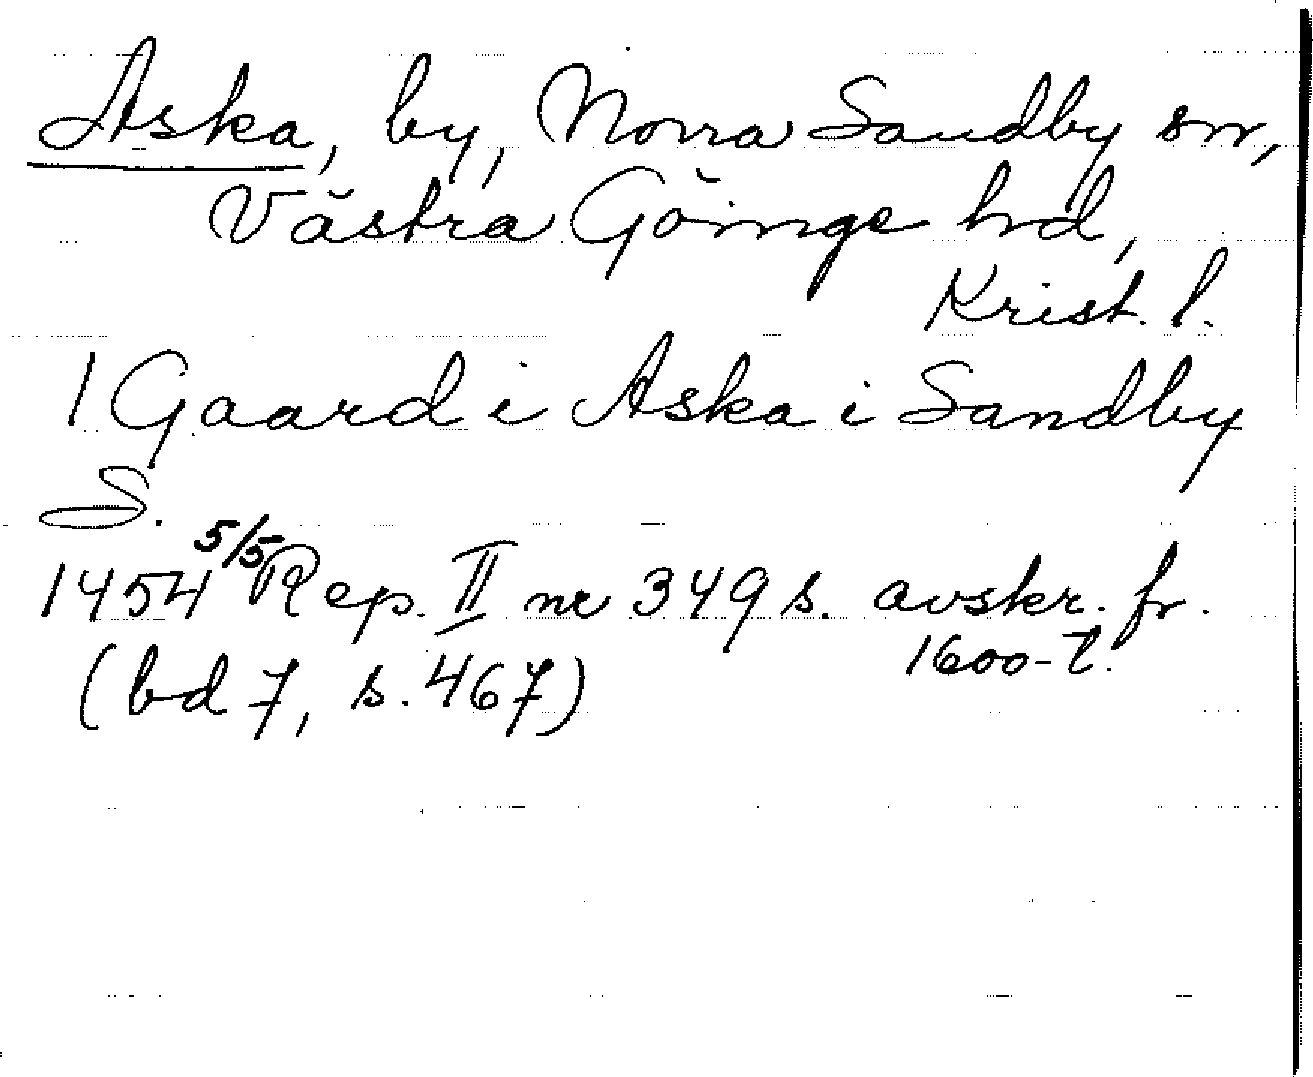 Aska, by, Norra Sandby sn,
Västra Göinge hd,
Krist. l.
1 Gaard i Aska i Sandby
S.
1454 5/5 Rep. II nr 349 s. avskr. fr.
1600-t.
(bd 7, s. 467)